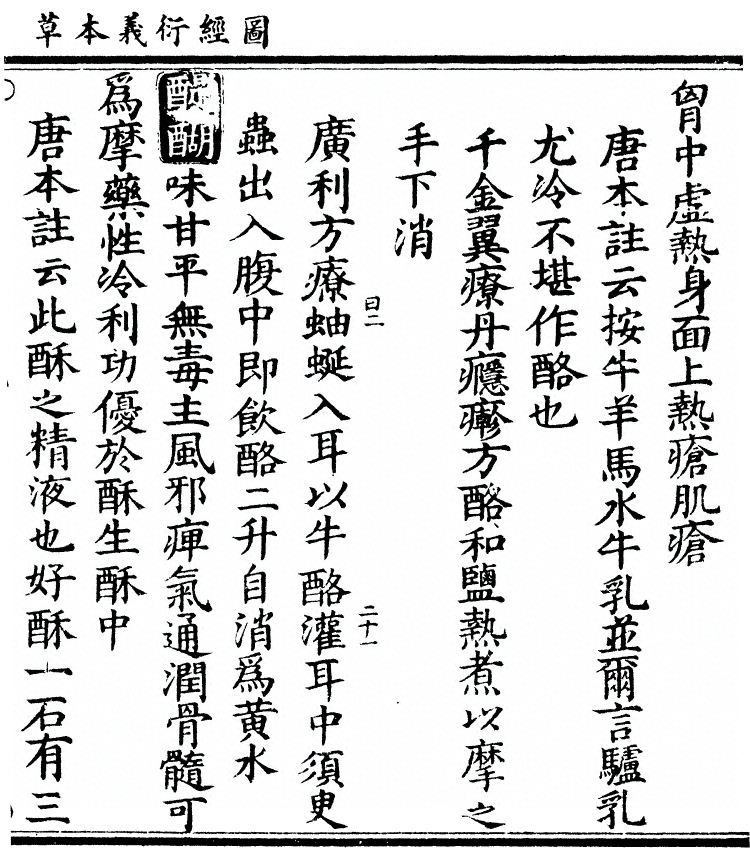 圖經衍義本草
胷中虛熱身面上熱瘡肌瘡
唐本註云按牛羊馬水牛乳並爾言驢乳
尤冷不堪作酪也
千金翼療丹癮瘮方酪和鹽熱煮以摩之
手下消
曰二
二十一
廣利方療蚰蜒入耳以牛酪灌耳中須臾
蟲出入腹中即飲酪二升自消爲黄水
醍醐味甘平無毒主風邪痺氣通潤骨髓可
爲摩藥性冷利功優於酥生酥中
唐本註云此酥之精液也好酥一石有三